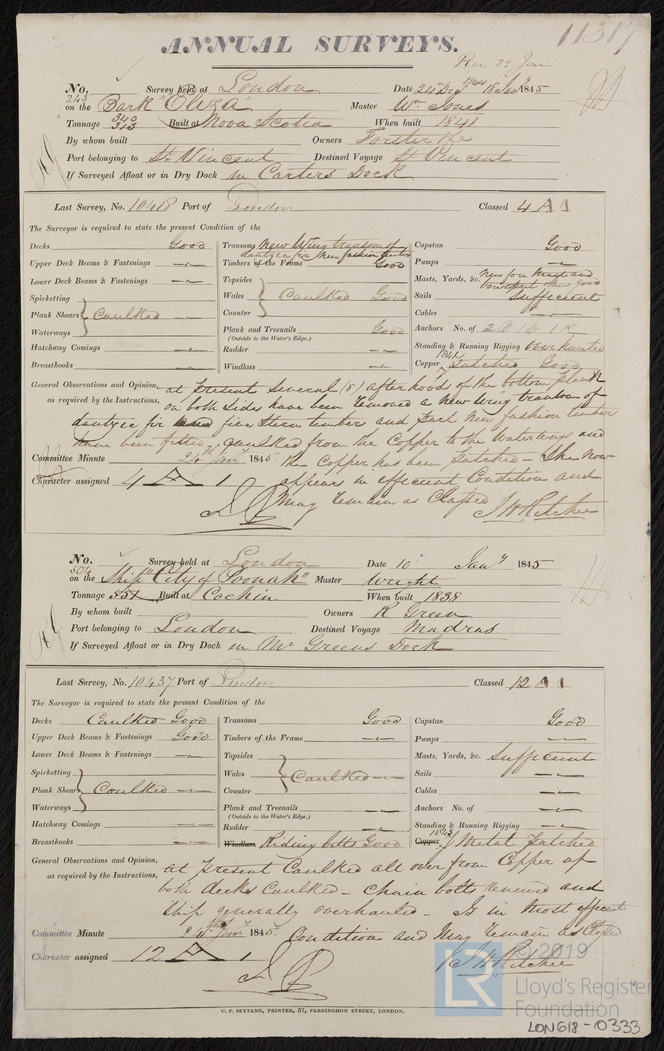 11317
ANNUAL SURVEYS.
Rec 23 Jan
No. 243 Survey held at London Date 24th Decr 1844 18 Jany 1845
on the Bark "Eliza" Master Wm Jones
Tonnage 340 313 Built at Nova Scotia When built 1841
By whom built Owners Forster &
Port belonging to St Vincent Destined Voyage St Vincent
If Surveyed Afloat or in Dry Dock in Carters Dock
Last Survey, No. 10418 Port of London Classed 4 A 1
The Surveyor is required to state the present Condition of the
Decks Good
Upper Deck Beams & Fastenings "
Lower Deck Beams & Fastenings "
Spirketting
Plank Shears } Caulked "
Waterways
Hatchway Comings "
Breasthooks "
Transoms New Wing transom of
for New fashion timbers
Timbers of the Frame Good
Topsides
Wales } Caulked Good
Counter
Plank and Treenails Good
(Outside to the Water's Edge.)
Rudder "
Windlass "
Capstan Good
Pumps "
Masts, Yards, &c. New fore Mast and
bowsprit thus good
Sails Sufficient
Cables "
Anchors No. of 2B 1S 1K
Standing & Running Rigging Overhauled
Copper 1841 Patched Good
General Observations and Opinion, at Present Several (8) after hoods of the bottom plank
as required by the Instructions, on both Sides have been removed a new Wing transom of
for five Stern timbers and Start New fashion timbers
have been fitted, Caulked from the Copper to the Waterways and
Committee Minute 24th Jany 1845. the Copper has been Patched – She now
Character assigned 4 A 1 appears in efficient Condition and
may remain as Classed
J H Ritchie
No. 504 Survey held at London Date 10 Jany 1845
on the Ship "City of Poonah" Master Wright
Tonnage 551 Built at Cochin When built 1838
By whom built Owners R Green
Port belonging to London Destined Voyage Madras
If Surveyed Afloat or in Dry Dock in Mr Greens Dock
Last Survey, No. 10437 Port of London Classed 12 A 1
The Surveyor is required to state the present Condition of the
Decks Caulked Good
Upper Deck Beams & Fastenings Good
Lower Deck Beams & Fastenings "
Spirketting
Plank Shears } Caulked "
Waterways
Hatchway Comings "
Breasthooks "
Transoms Good
Timbers of the Frame "
Topsides
Wales } Caulked "
Counter
Plank and Treenails "
(Outside to the Water's Edge.)
Rudder "
Windlass Riding bitts Good
Capstan Good
Pumps "
Masts, Yards, &c. Sufficient
Sails "
Cables "
Anchors No. of "
Standing & Running Rigging "
Copper 1843 Y Metal Patched
General Observations and Opinion, at Present Caulked all over from Copper up
as required by the Instructions, both decks Caulked – Chain bolts renewed and
Ship generally overhauled – Is in most efficient
Committee Minute 24th Jany 1845. Condition and may remain as Classed
Character assigned 12 A 1
J H Ritchie
C. F. SEYFANG, PRINTER, 57, FARRINGDON STREET, LONDON.
© 2019
LR Lloyd's Register
Foundation
LON618-0333